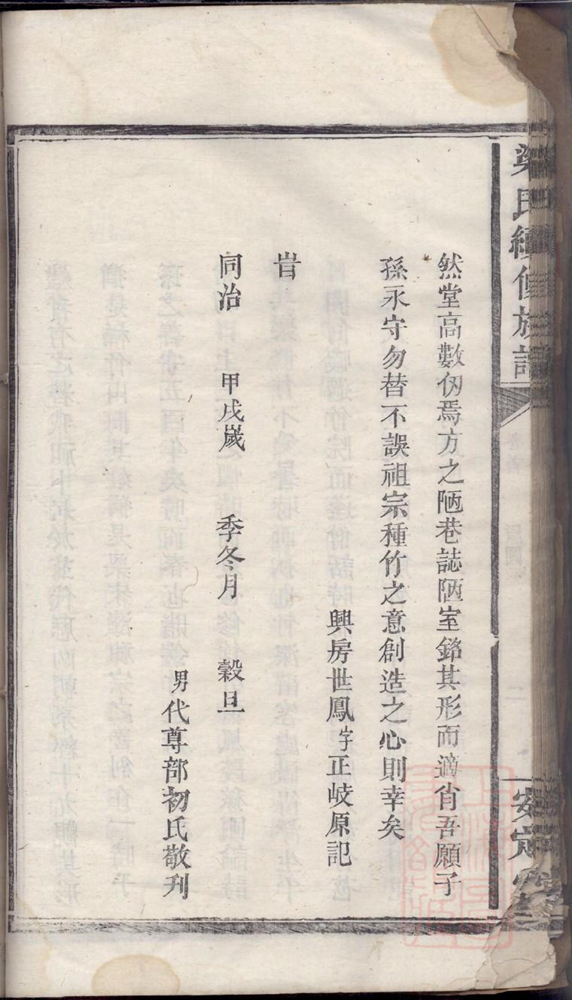 梁氏續修族譜
安定堂
然堂高數仞焉方之陋巷誌陋室銘其形而適肖吾願子
孫永守勿替不誤祖宗種竹之意創造之心則幸矣
興房世鳳字正岐原記
旹
同治 甲戌嵗 季冬月 榖旦
男代尊部初氏敬刊